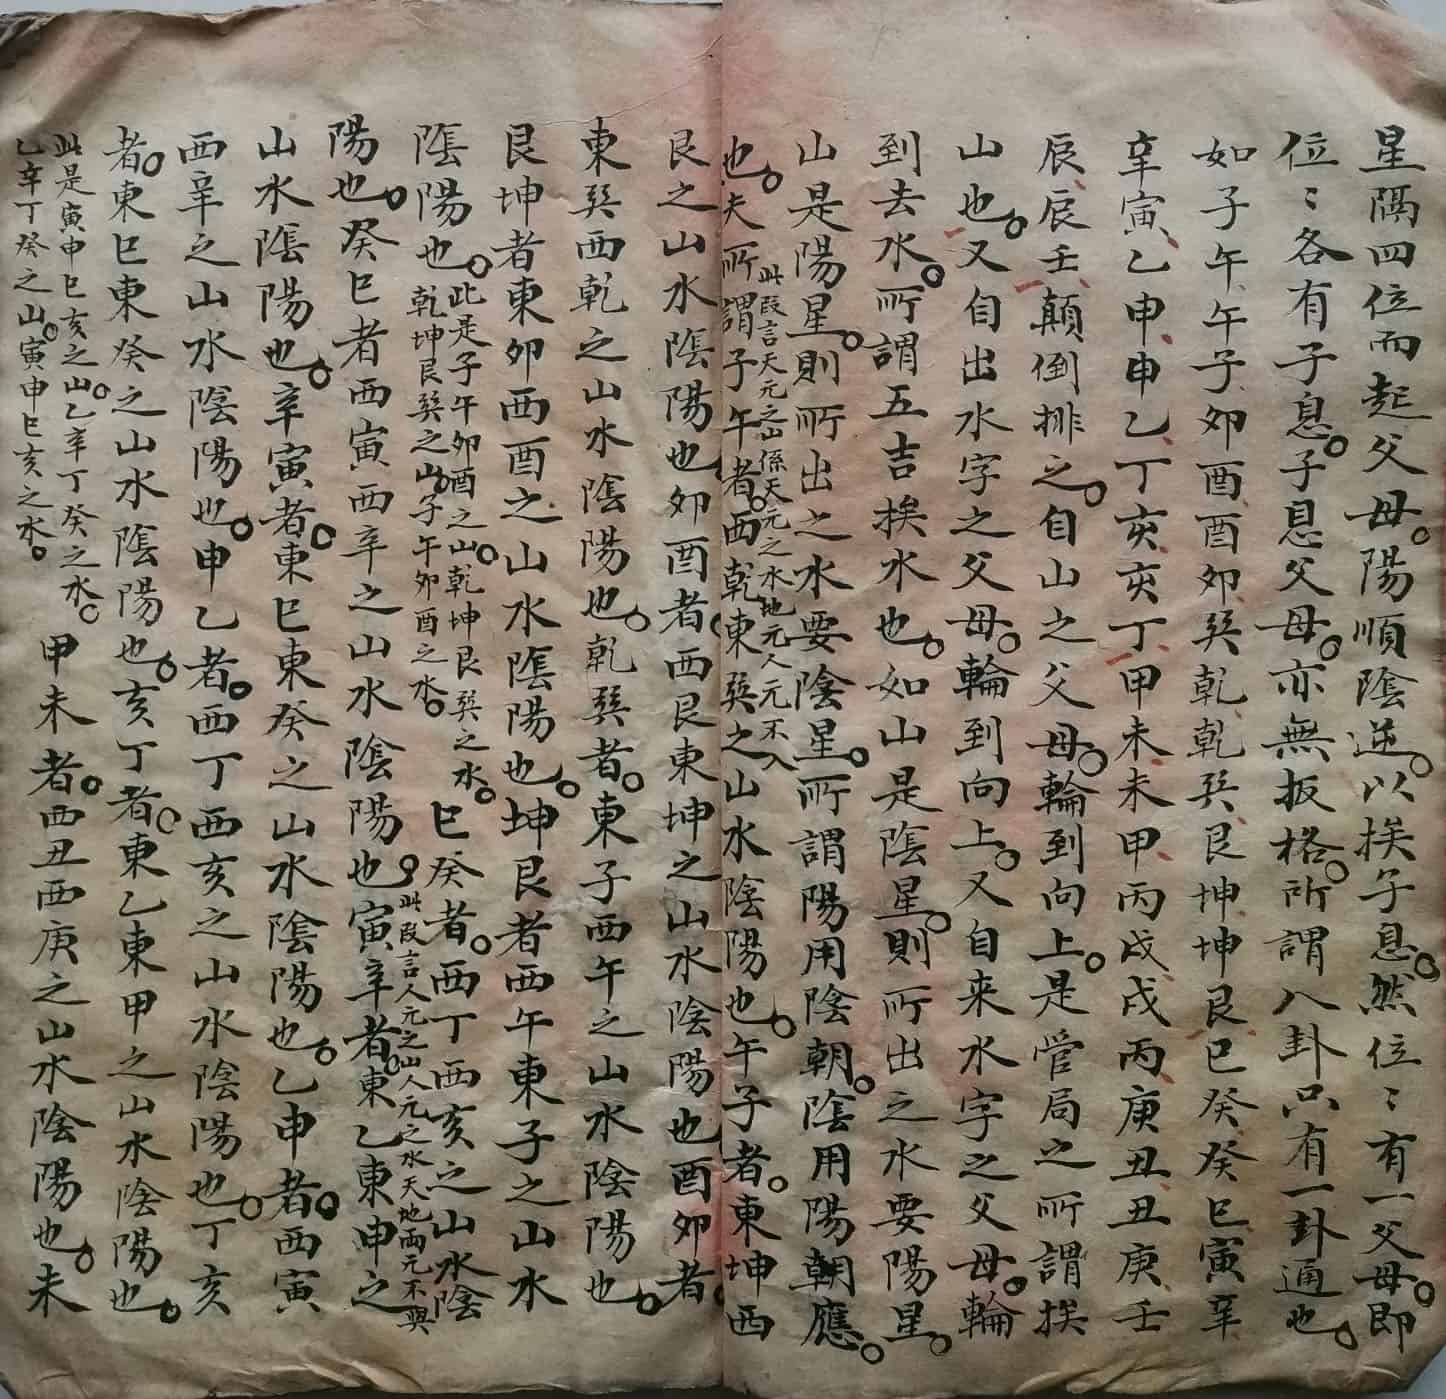 星隅四位而起父母。陽順陰逆。以挨子息。然位〻有一父母。即
位〻各有子息。子息父母。亦無扳格。所謂八卦只有一卦通也。
如子午、午子、卯酉、酉卯、巽乾、乾巽、艮坤、坤艮、巳癸、癸巳、寅辛、
辛寅、乙申、申乙、丁亥、亥丁、甲未、未甲、丙戌、戌丙、庚丑、丑庚、壬
辰、辰壬、顛倒排之。自山之父母。輪到向上。是管局之所謂挨
山也。又自出水字之父母。輪到向上。又自来水字之父母。輪
到去水。所謂五吉挨水也。如山是陰星。則所出之水要陽星。
山是陽星。則所出之水要陰星。所謂陽用陰朝。陰用陽朝應。
也。夫所謂子午者。西乾東巽之山水陰陽也。午子者。東坤西
此段言天元之山係天元之水地元人元不入
艮之山水陰陽也卯酉者西艮東坤之山水陰陽也酉卯者
東巽西乾之山水陰陽也。乾巽者。東子西午之山水陰陽也。
艮坤者東卯西酉之山水陰陽也。坤艮者西午東子之山水
陰陽也。此是子午卯酉之山。乾坤艮巽之水。巳癸者。西丁西亥之山水陰
乾坤艮巽之山。子午卯酉之水。
陽也。癸巳者西寅西辛之山水陰陽也。此段言人元之山人元之水天地兩元不與寅辛者。東乙東申之
山水陰陽也。辛寅者。東巳東癸之山水陰陽也。乙申者。西寅
西辛之山水陰陽也。申乙者。西丁西亥之山水陰陽也。丁亥
者。東巳東癸之山水陰陽也。亥丁者。東乙東甲之山水陰陽也。
此是寅申巳亥之山。乙辛丁癸之水。甲未者。西丑西庚之山水陰陽也。未
乙辛丁癸之山。寅申巳亥之水。